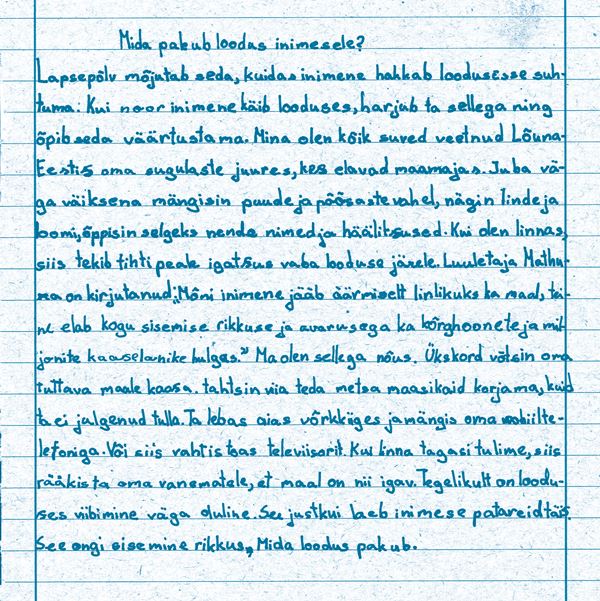 Mida pakub loodas inimesele?
Lapsepõlv mõjutab seda, kuidas inimene hakkab loodusesse suh-
tuma. Kui noor inimene käib looduses, harjub ta sellega ning
õpib seda väärtustama. Mina olen kõik suved veetnud Lõuna-
Eestis oma sugulaste juures, kes elavad maamajas. Juba vä-
ga väiksena mängisin puude ja põõsaste vahel, nägin linde ja
loomi, õppisin selgeks nende nimed ja häälitsused. Kui olen linnas,
siis tekib tihti peale igatsus vaba looduse järele. Luuletaja Mathu-
ra on kirjutanud: „Mõni inimene jääb äärmiselt linlikuks ka maal, tei-
ne elab kogu sisemise rikkuse ja avarusega ka kõrghoonete ja mil-
jonite kaaselanike hulgas.” Ma olen sellega nõus. Ükskord võtsin oma
tuttava maale kaasa. tahtsin viia teda metsa maasikaid korjama, kuid
ta ei jalgenud tulla. Ta lebas aias võrkkiiges ja mängis oma mobiilte-
lefoniga. Või siis vahtis toas televiisorit. Kui linna tagasi tulime, siis
rääkis ta oma vanematele, et maal on nii igav. Tegelikult on loodu-
ses viibimine väga oluline. See justkui laeb inimese patareid täis.
See ongi sisemine rikkus, Mida loodus pakub.